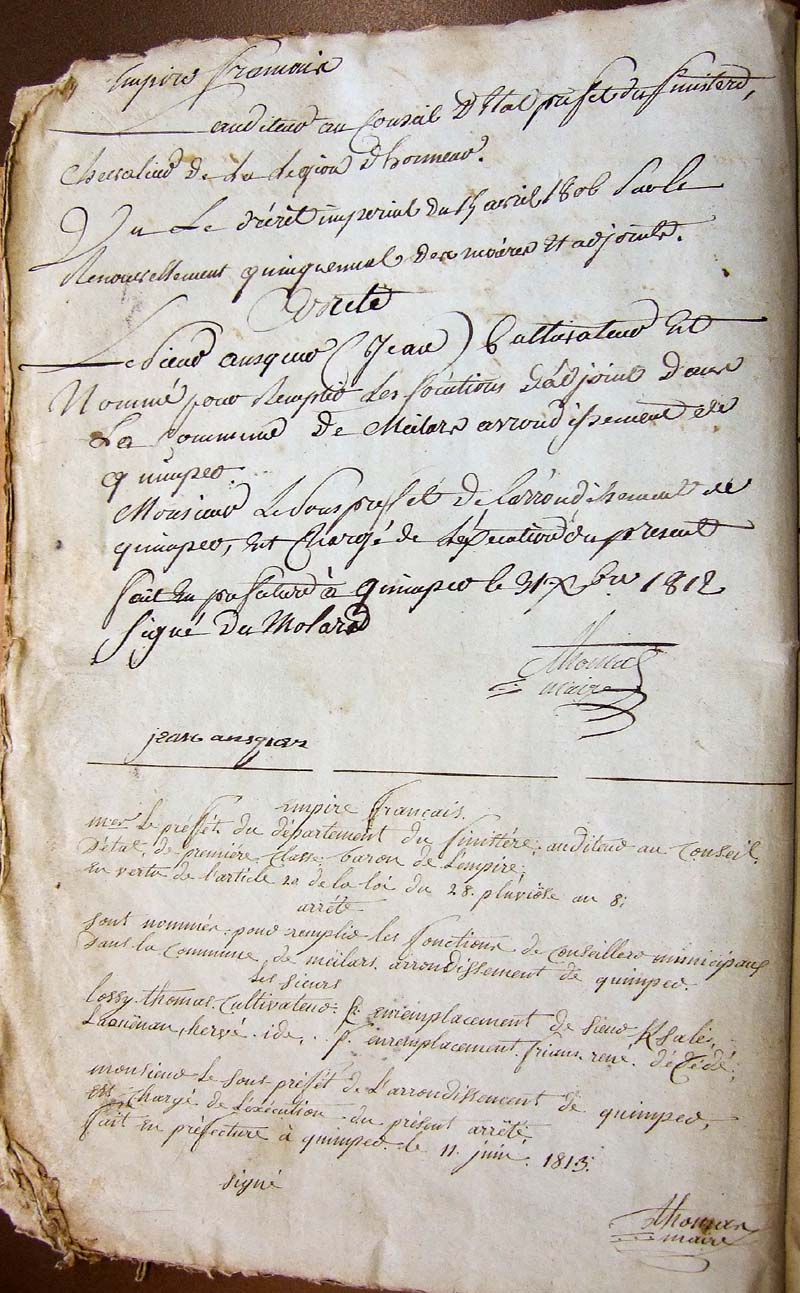 Empire francais
auditeur au Conseil D'Etat préfet du finistere,
Chevalier de la Legion d'honneur.
Vu Le décrèt imperial du 15 avril 1806 sur le
Renouvellement quinquennal des maires et adjoints.
arrète
Le Sieur ansquer (Jean) Cultivateur Est
Nommé pour Remplir Les fonctions d'adjoint dans
La Commune De Meilars arrondissement de
quimper.
Monsieur Le Sous préfet De L'arrondissement de
quimper, est Chargé de L'éxecution du present
fait En prefecture à quimper le 31 Xbre 1812
Signé Du Molard
thomas
maire
jean ansquer
empire français.
mer Le préfet du département du finistére; auditeur au Conseil
D'état, de premiére Classe, baron de L'empire;
En vertu de L'article 20 de la loi du 28. pluviôse an 8;
arrété
sont nommés pour remplir les fonctions de conseillers municipaux
dans la commune de meilars arrondissement de quimper.
les sieurs
lossy thomas. Cultivateur: p. enremplacement de sieur Ksalé,
Laouënan, hervé. ide. . p. enremplacement. friant rené. décédé;
monsieur le sous préfét de L'arrondissement de quimper,
est chargé de L'exécution du présent arrété,
fait En préfecture à quimper le 11 juin 1813;
signé
thomas
maire